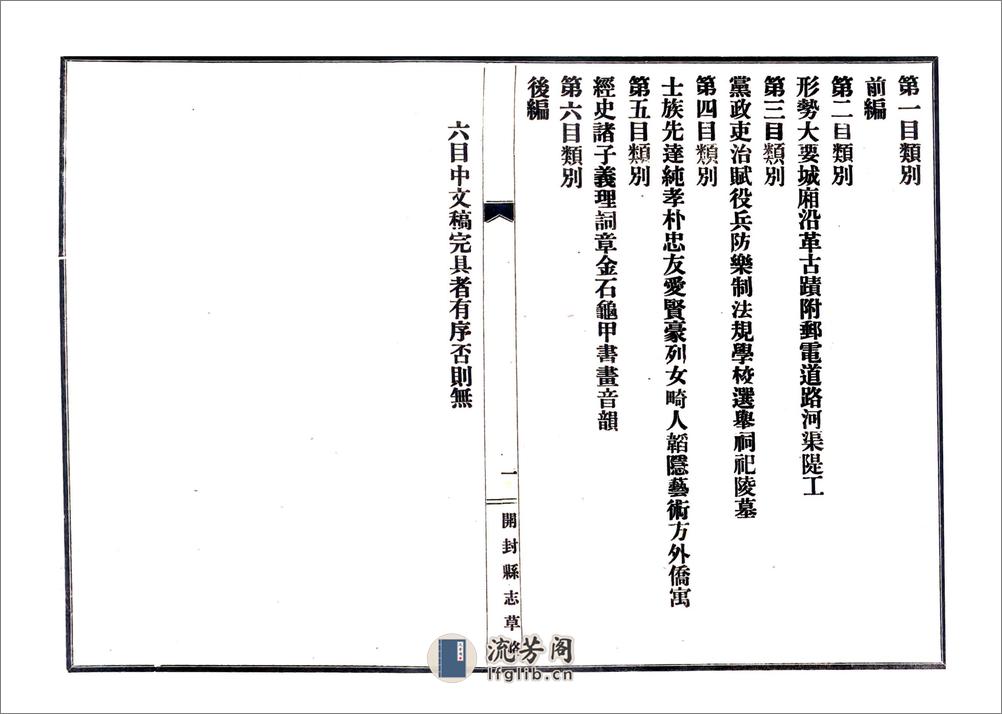 第一目類別
前編
第二目類別
形勢大要城廂沿革古蹟附郵電道路河渠隄工
第三目類別
黨政吏治賦役兵防樂制法規學校選舉祠祀陵墓
第四目類別
士族先達純孝朴忠友愛賢豪列女畸人韜隱藝術方外僑寓
第五目類別
經史諸子義理詞章金石龜甲書畫音韻
第六目類別
後編
一
開封縣志草
六目中文稿完具者有序否則無
流芳阁
lfglib.cn